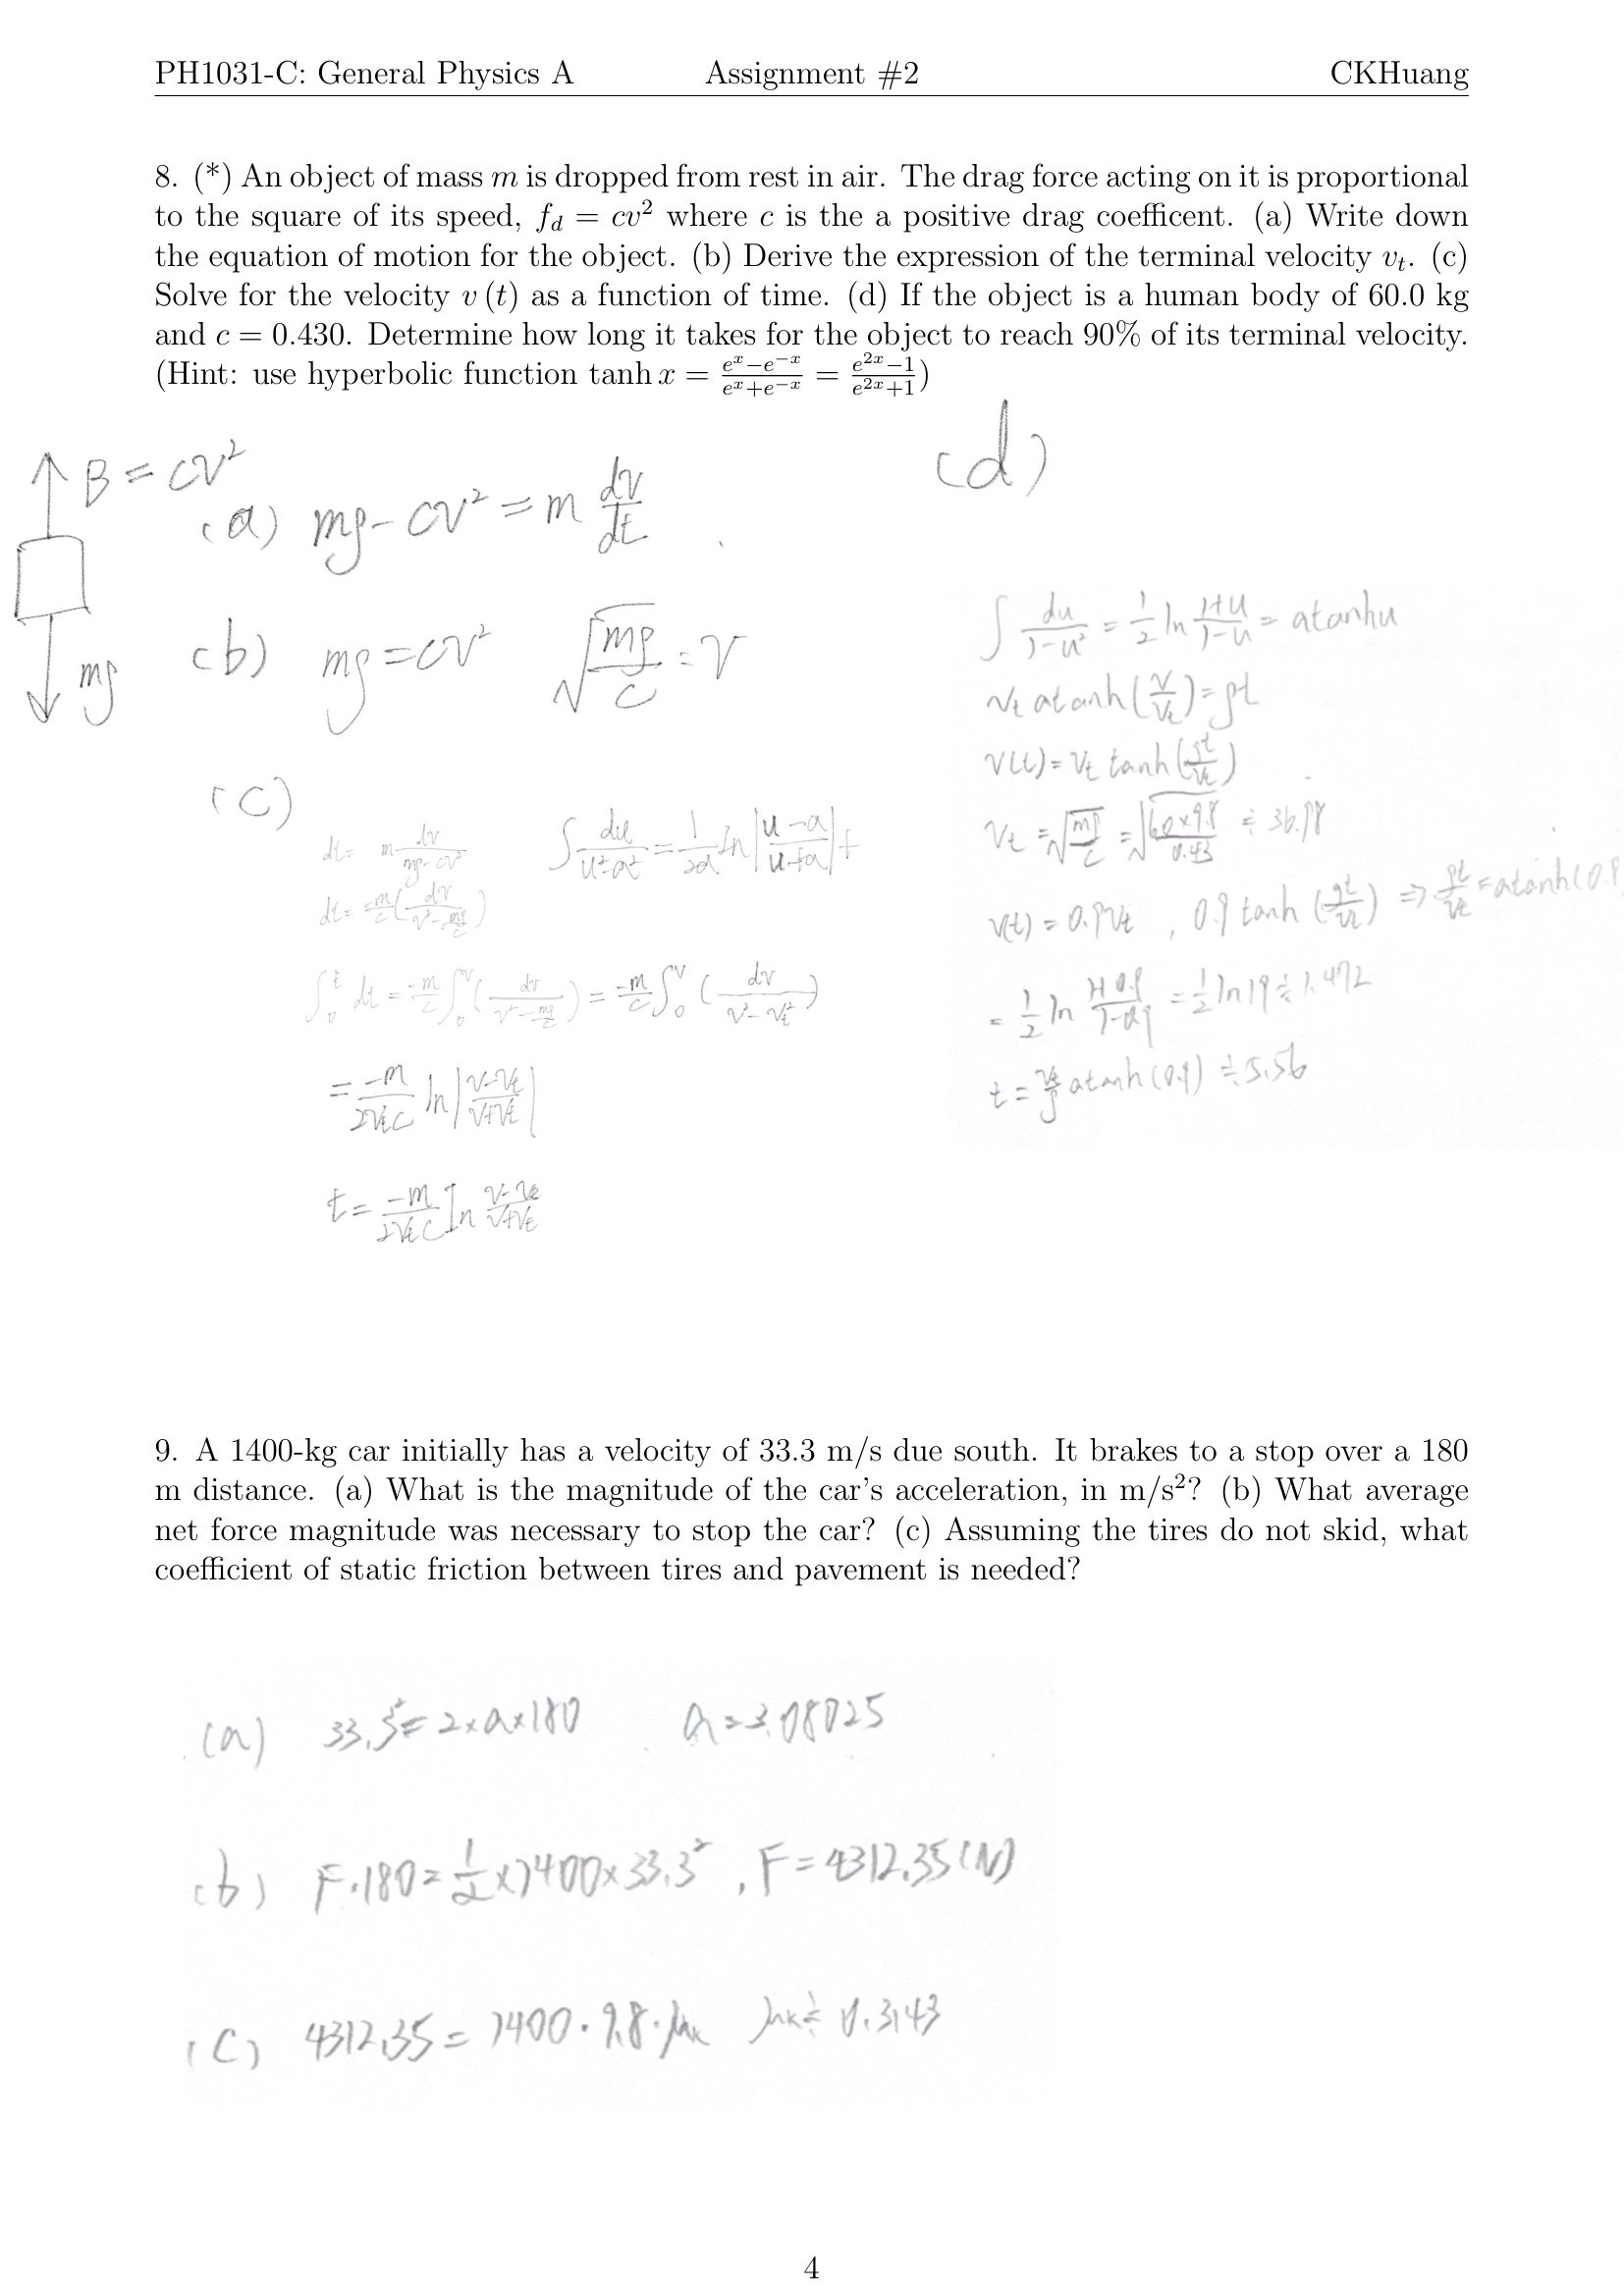 PH1031-C: General Physics A Assignment #2 CKHuang
8. (*) An object of mass m is dropped from rest in air. The drag force acting on it is proportional
to the square of its speed, f_d = cv² where c is the a positive drag coefficent. (a) Write down
the equation of motion for the object. (b) Derive the expression of the terminal velocity v_t. (c)
Solve for the velocity v (t) as a function of time. (d) If the object is a human body of 60.0 kg
and c = 0.430. Determine how long it takes for the object to reach 90% of its terminal velocity.
(Hint: use hyperbolic function tanh x = (e^x−e^{−x})/(e^x+e^{−x}) = (e^{2x}−1)/(e^{2x}+1))
B = cv²
mg
(a) mg - cv² = m dv/dt
(b) mg = cv² √(mg/c) = v
(c)
dt = m dv/(mg-cv²) ∫ du/(u²-a²) = 1/2a ln |(u-a)/(u+a)| +
dt = -m/c (dv/(v² - mg/c))
∫_0^t dt = -m/c ∫_0^v (dv/(v² - mg/c)) = -m/c ∫_0^v (dv/(v² - v_t²))
= -m/(2v_t c) ln |(v-v_t)/(v+v_t)|
t = -m/(2v_t c) ln (v-v_t)/(v+v_t)
(d)
∫ du/(1-u²) = 1/2 ln (1+u)/(1-u) = atanhu
v_t atanh(v/v_t) = gt
v(t) = v_t tanh(gt/v_t)
v_t = √(mg/c) = √(60×9.8/0.43) ≒ 36.98
v(t) = 0.9v_t , 0.9 tanh (gt/v_t) ⇒ gt/v_t = atanh(0.9
= 1/2 ln (1+0.9)/(1-0.9) = 1/2 ln19 ≒ 1.472
t = v_t/g atanh(0.9) ≒ 5.56
9. A 1400-kg car initially has a velocity of 33.3 m/s due south. It brakes to a stop over a 180
m distance. (a) What is the magnitude of the car's acceleration, in m/s²? (b) What average
net force magnitude was necessary to stop the car? (c) Assuming the tires do not skid, what
coefficient of static friction between tires and pavement is needed?
(a) 33.3² = 2×a×180 a = 3.08025
(b) F·180 = 1/2 ×1400×33.3² , F = 4312.35 (N)
(c) 4312.35 = 1400·9.8·μk μk ≒ 0.3143
4